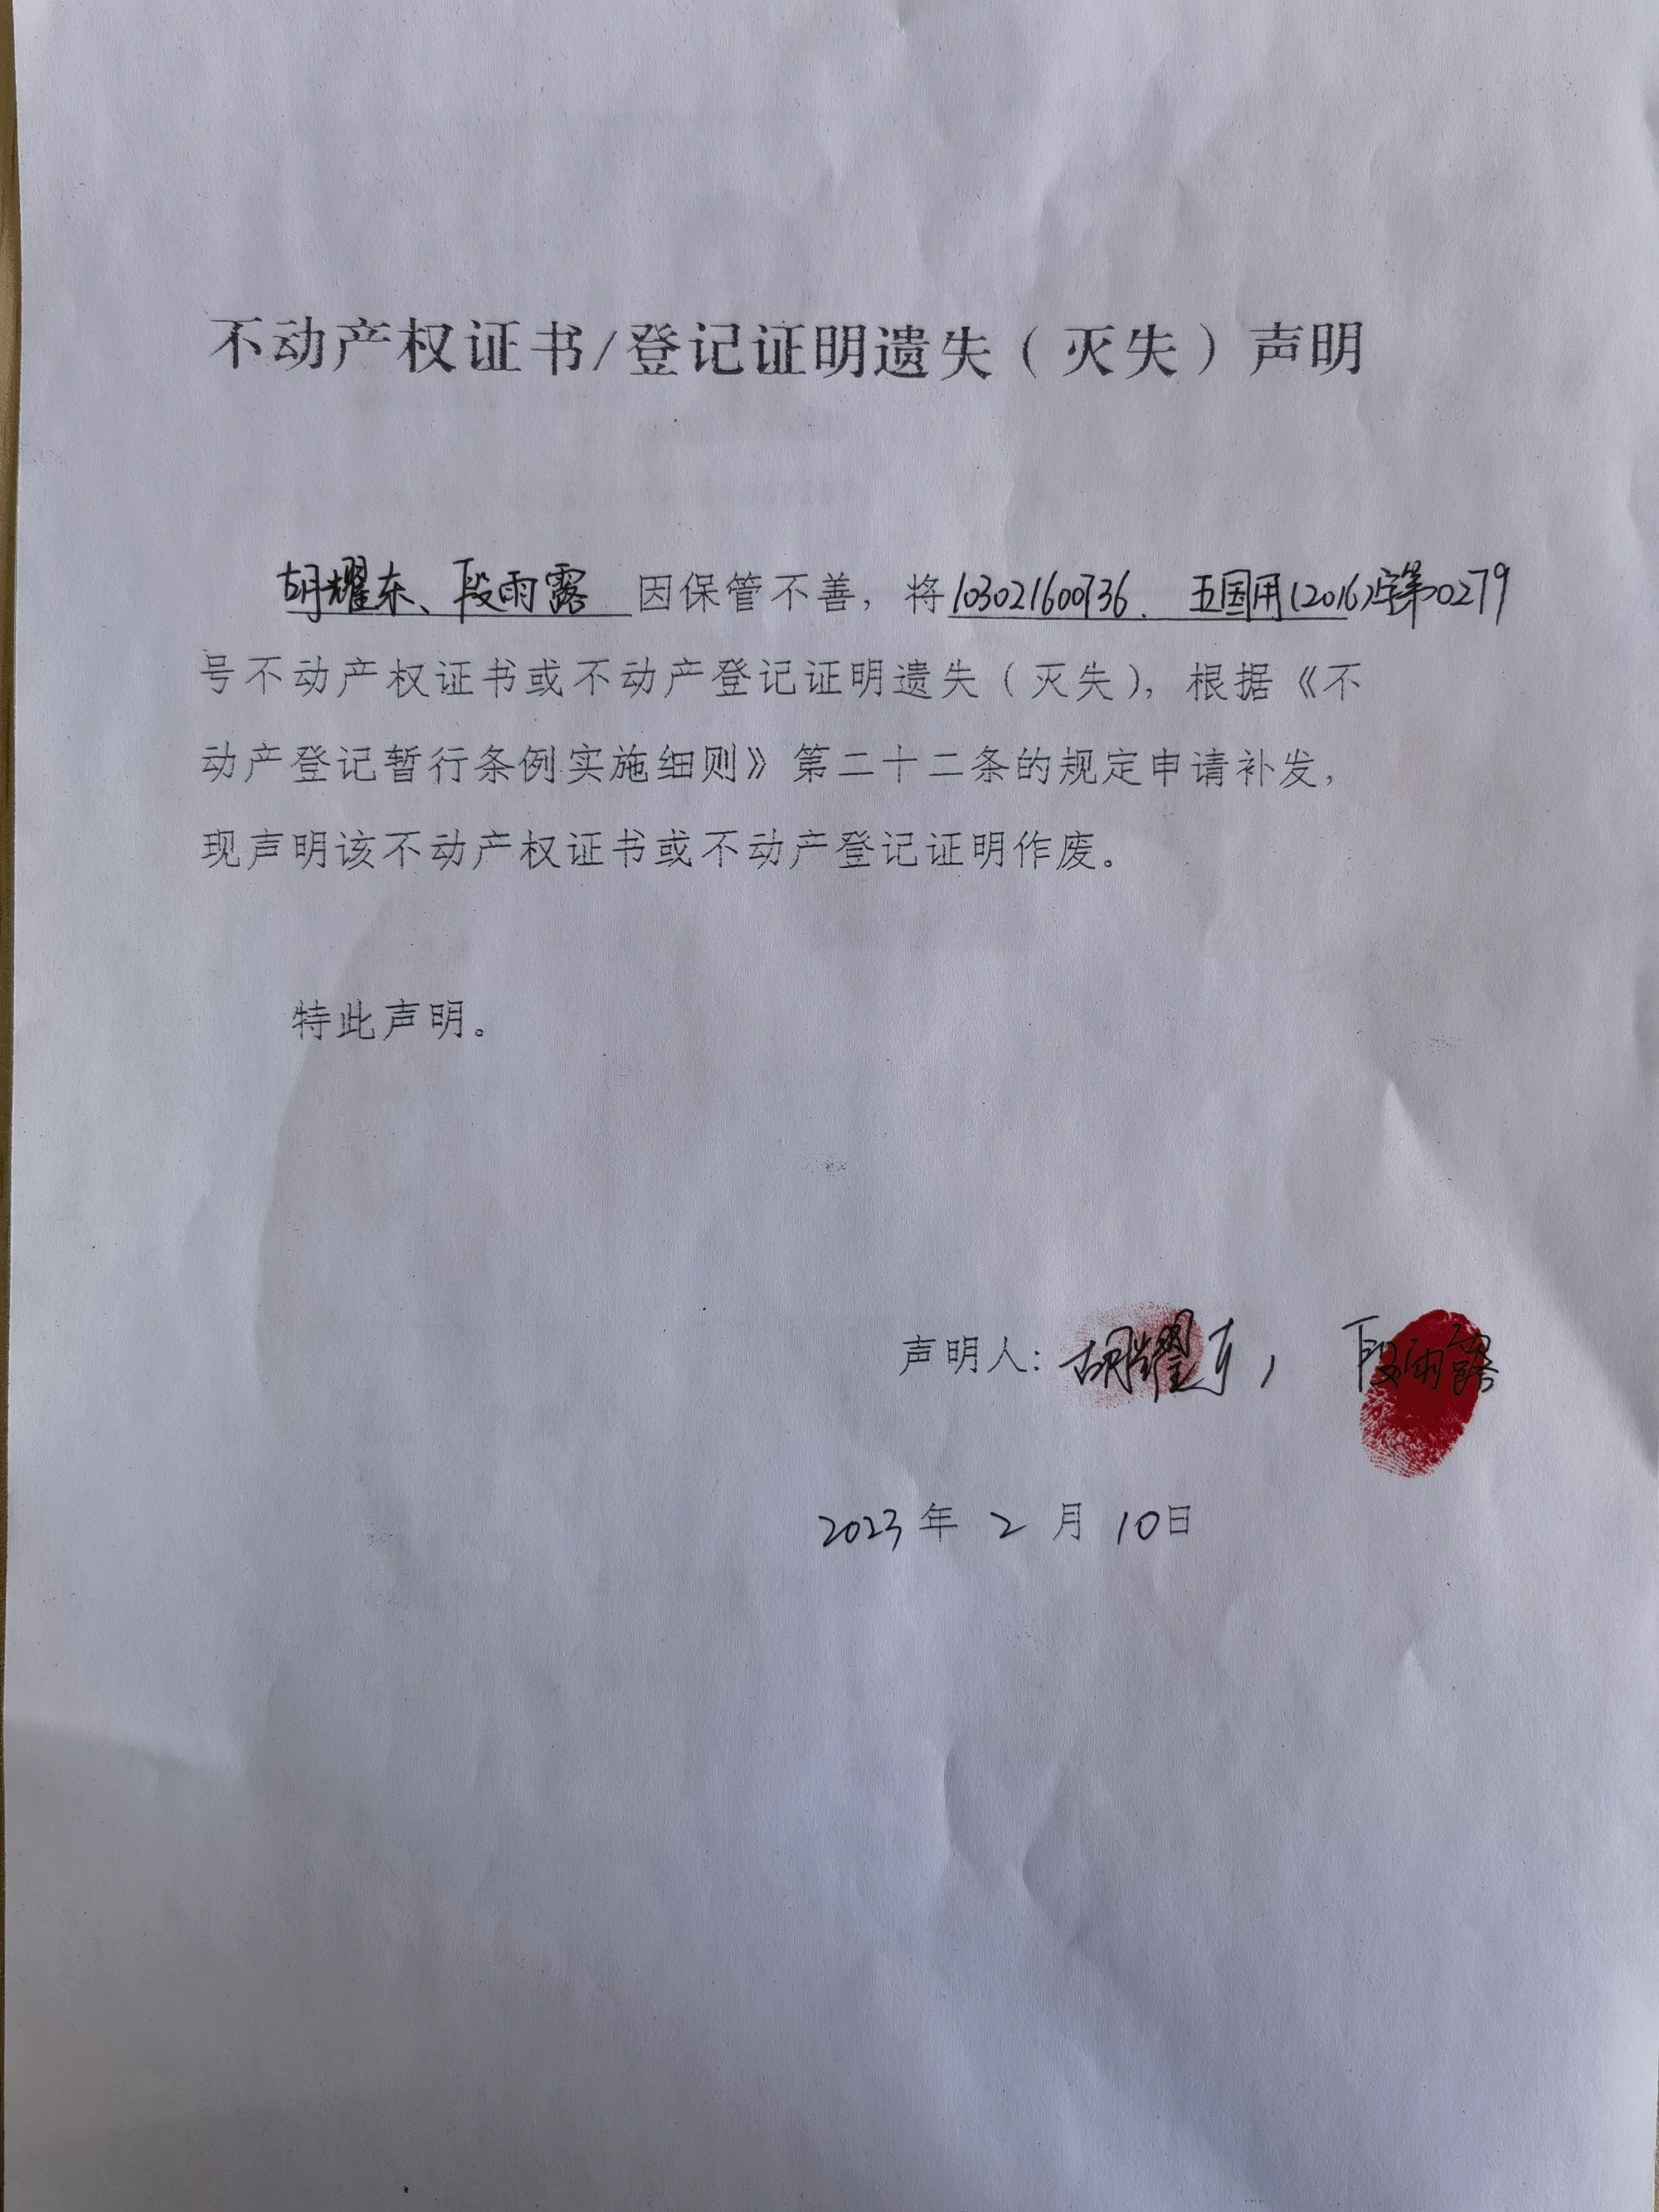 不动产权证书/登记证明遗失（灭失）声明
胡耀东、段雨露因保管不善，将103021600736、五国用(2016)字第00279
号不动产权证书或不动产登记证明遗失（灭失），根据《不
动产登记暂行条例实施细则》第二十二条的规定申请补发，
现声明该不动产权证书或不动产登记证明作废。
特此声明。
声明人：胡耀东，段雨露
2023年2月10日